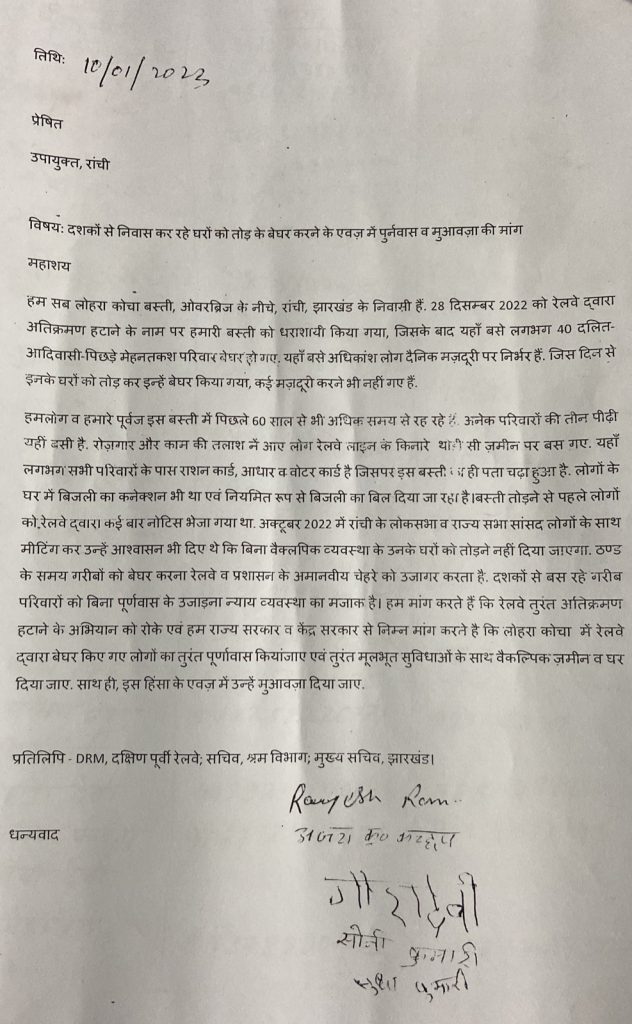 तिथि: 10/01/2023
प्रेषित
उपायुक्त, रांची
विषय: दशकों से निवास कर रहे घरों को तोड़ के बेघर करने के एवज में पुर्नवास व मुआवज़ा की मांग
महाशय
हम सब लोहरा कोचा बस्ती, ओवरब्रिज के नीचे, रांची, झारखंड के निवासी हैं. 28 दिसम्बर 2022 को रेलवे द्वारा
अतिक्रमण हटाने के नाम पर हमारी बस्ती को धराशायी किया गया, जिसके बाद यहाँ बसे लगभग 40 दलित-
आदिवासी-पिछड़े मेहनतकश परिवार बेघर हो गए. यहाँ बसे अधिकांश लोग दैनिक मज़दूरी पर निर्भर हैं. जिस दिन से
इनके घरों को तोड़ कर इन्हें बेघर किया गया, कई मज़दूरी करने भी नहीं गए हैं.
हमलोग व हमारे पूर्वज इस बस्ती में पिछले 60 साल से भी अधिक समय से रह रहे हैं. अनेक परिवारों की तीन पीढ़ी
यहीं बसी है. रोज़गार और काम की तलाश में आए लोग रेलवे लाइन के किनारे थोड़ी सी ज़मीन पर बस गए. यहाँ
लगभग सभी परिवारों के पास राशन कार्ड, आधार व वोटर कार्ड है जिसपर इस बस्ती का ही पता चढ़ा हुआ है. लोगों के
घर में बिजली का कनेक्शन भी था एवं नियमित रूप से बिजली का बिल दिया जा रहा है।बस्ती तोड़ने से पहले लोगों
को रेलवे द्वारा कई बार नोटिस भेजा गया था. अक्टूबर 2022 में रांची के लोकसभा व राज्य सभा सांसद लोगों के साथ
मीटिंग कर उन्हें आश्वासन भी दिए थे कि बिना वैक्लपिक व्यवस्था के उनके घरों को तोड़ने नहीं दिया जाएगा. ठण्ड
के समय गरीबों को बेघर करना रेलवे व प्रशासन के अमानवीय चेहरे को उजागर करता है. दशकों से बस रहे गरीब
परिवारों को बिना पूर्णवास के उजाड़ना न्याय व्यवस्था का मजाक है। हम मांग करते हैं कि रेलवे तुरंत अतिक्रमण
हटाने के अभियान को रोके एवं हम राज्य सरकार व केंद्र सरकार से निम्न मांग करते है कि लोहरा कोचा में रेलवे
द्वारा बेघर किए गए लोगों का तुरंत पूर्णावास कियांजाए एवं तुरंत मूलभूत सुविधाओं के साथ वैकल्पिक ज़मीन व घर
दिया जाए. साथ ही, इस हिंसा के एवज में उन्हें मुआवज़ा दिया जाए.
प्रतिलिपि - DRM, दक्षिण पूर्वी रेलवे; सचिव, श्रम विभाग; मुख्य सचिव, झारखंड।
Ram
धन्यवाद
गौरा देवी
सोनी कुमारी
कुमारी